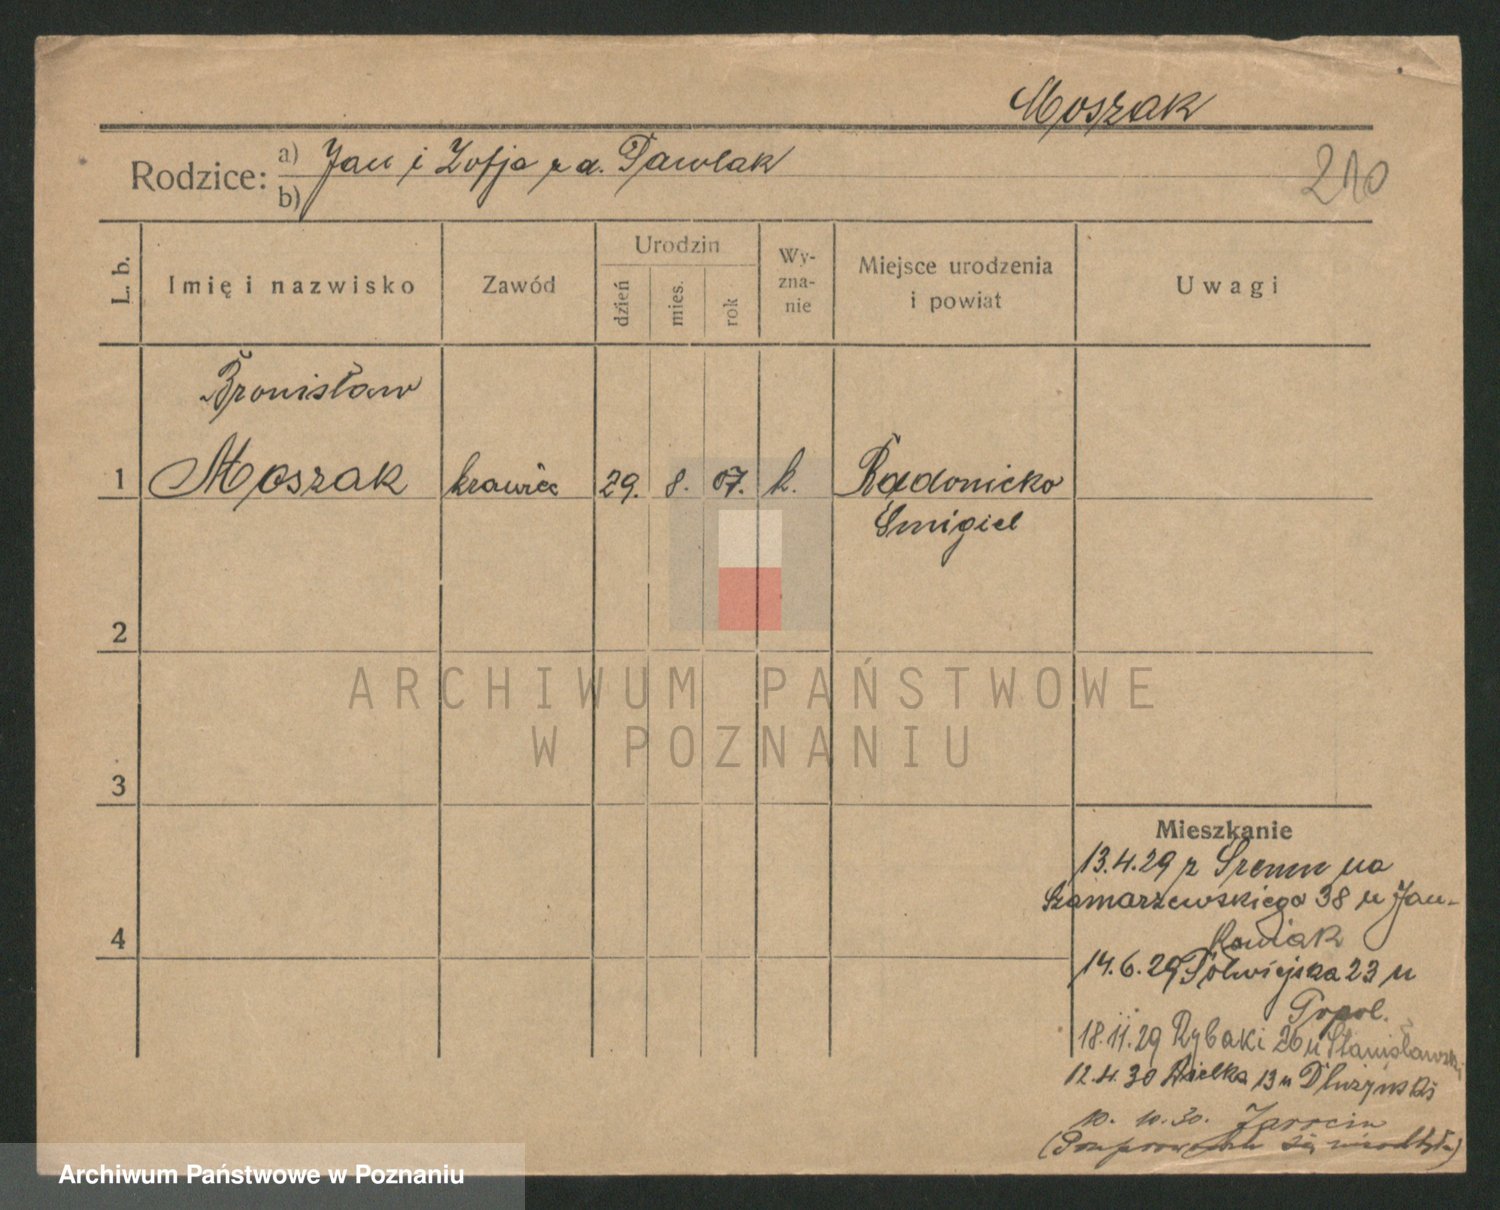 Moszak
210
Rodzice: a) Jan i Zofja z d. Pawlak
b)
L. b.
Imię i nazwisko
Zawód
Urodzin
dzień
mies.
rok
Wy-
zna-
nie
Miejsce urodzenia
i powiat
Uwagi
Bronisław
1 Moszak krawiec 29. 8. 07. k. Radonicko
Śmigiel
2
ARCHIWUM PAŃSTWOWE
W POZNANIU
3
Mieszkanie
13.4.29 z Śremu na
Szamarzewskiego 38 u Jan-
kowiak
4
14.6.29 Półwiejska 23 u
18.11.29 Rybaki 26 u Stanisławski
12.4.30 Wielka 13 u Dłużyński
10. 10. 30. Jarocin
Archiwum Państwowe w Poznaniu